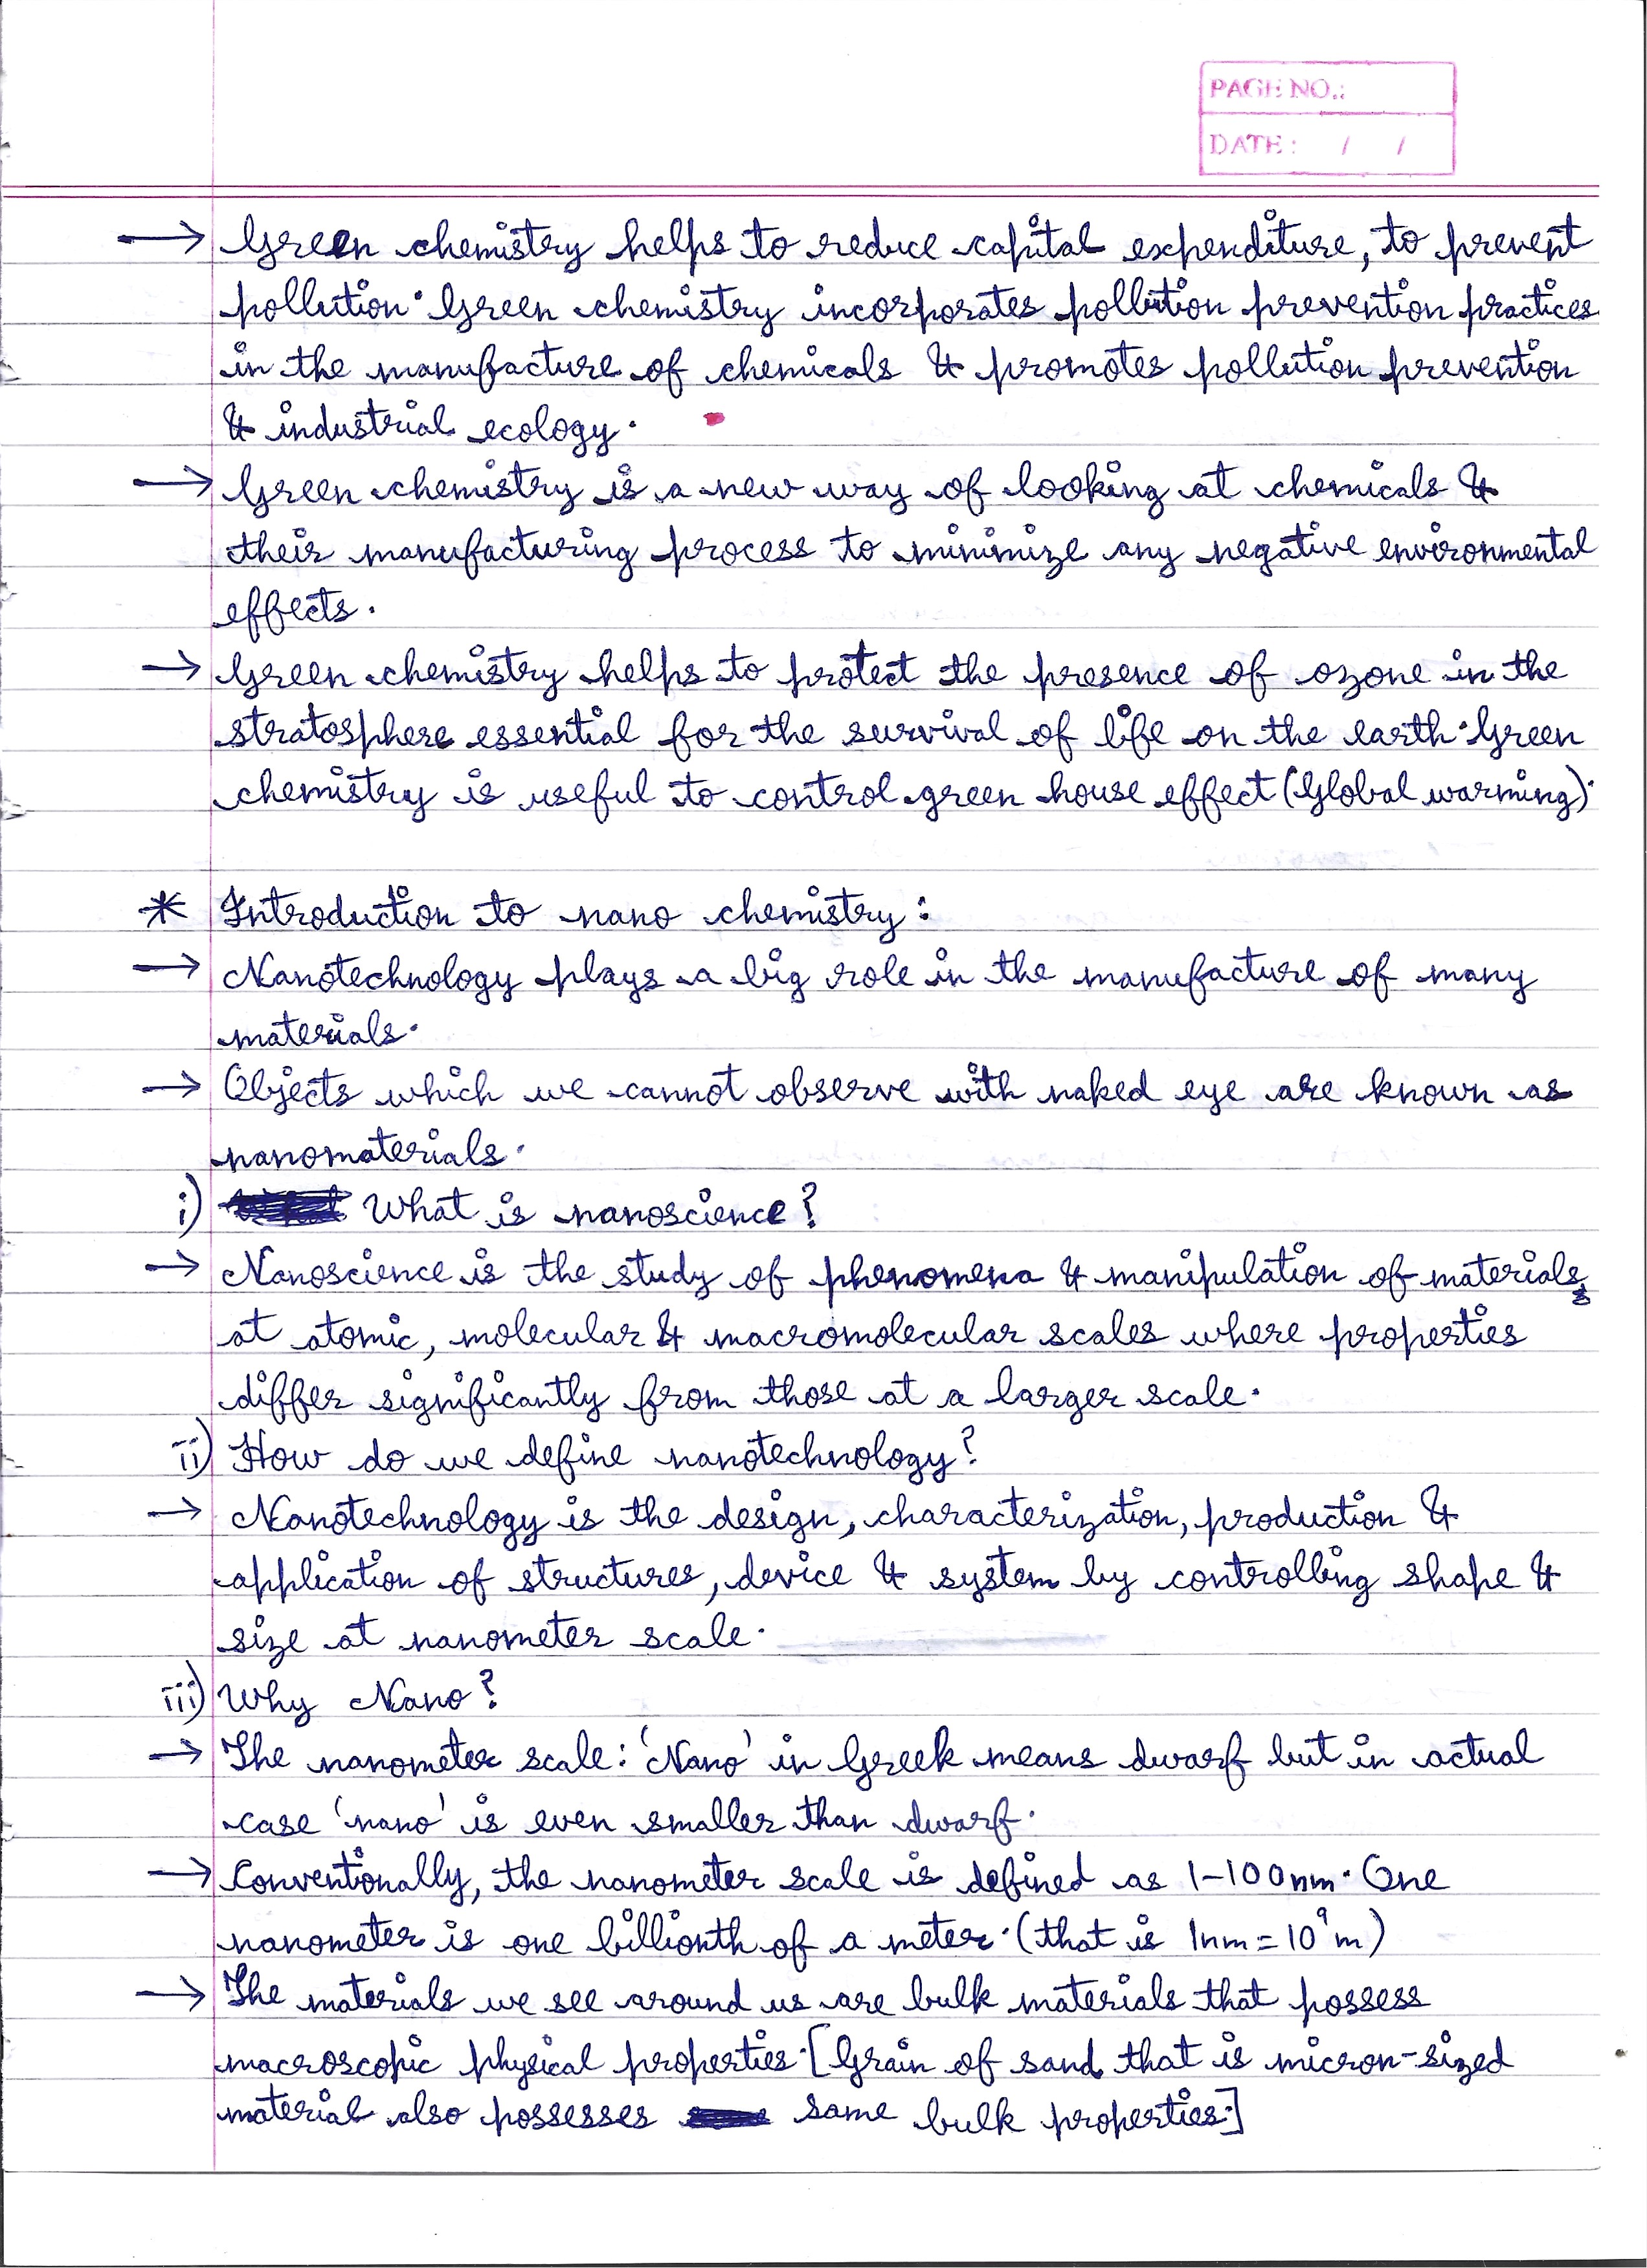 PAGE NO.:
DATE: / /
→ Green chemistry helps to reduce capital expenditure, to prevent
pollution. Green chemistry incorporates pollution prevention practices
in the manufacture of chemicals & promotes pollution prevention
& industrial ecology.
→ Green chemistry is a new way of looking at chemicals &
their manufacturing process to minimize any negative environmental
effects.
→ Green chemistry helps to protect the presence of ozone in the
stratosphere essential for the survival of life on the earth. Green
chemistry is useful to control green house effect (Global warming).
* Introduction to nano chemistry:
→ Nanotechnology plays a big role in the manufacture of many
materials.
→ Objects which we cannot observe with naked eye are known as
nanomaterials.
i) What is nanoscience?
→ Nanoscience is the study of phenomena & manipulation of materials
at atomic, molecular & macromolecular scales where properties
differ significantly from those at a larger scale.
ii) How do we define nanotechnology?
→ Nanotechnology is the design, characterization, production &
application of structures, device & system by controlling shape &
size at nanometer scale.
iii) Why Nano?
→ The nanometer scale: 'Nano' in Greek means dwarf but in actual
case 'nano' is even smaller than dwarf.
→ Conventionally, the nanometer scale is defined as 1-100nm. One
nanometer is one billionth of a meter. (that is 1nm = 10⁹m)
→ The materials we see around us are bulk materials that possess
macroscopic physical properties. [Grain of sand that is micron-sized
material also possesses same bulk properties.]